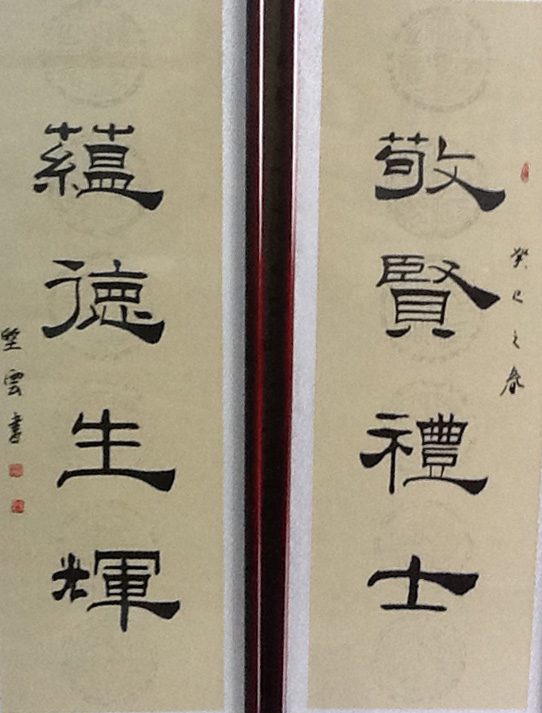 敬賢禮士
癸巳之春
蘊德生輝
堅雲書